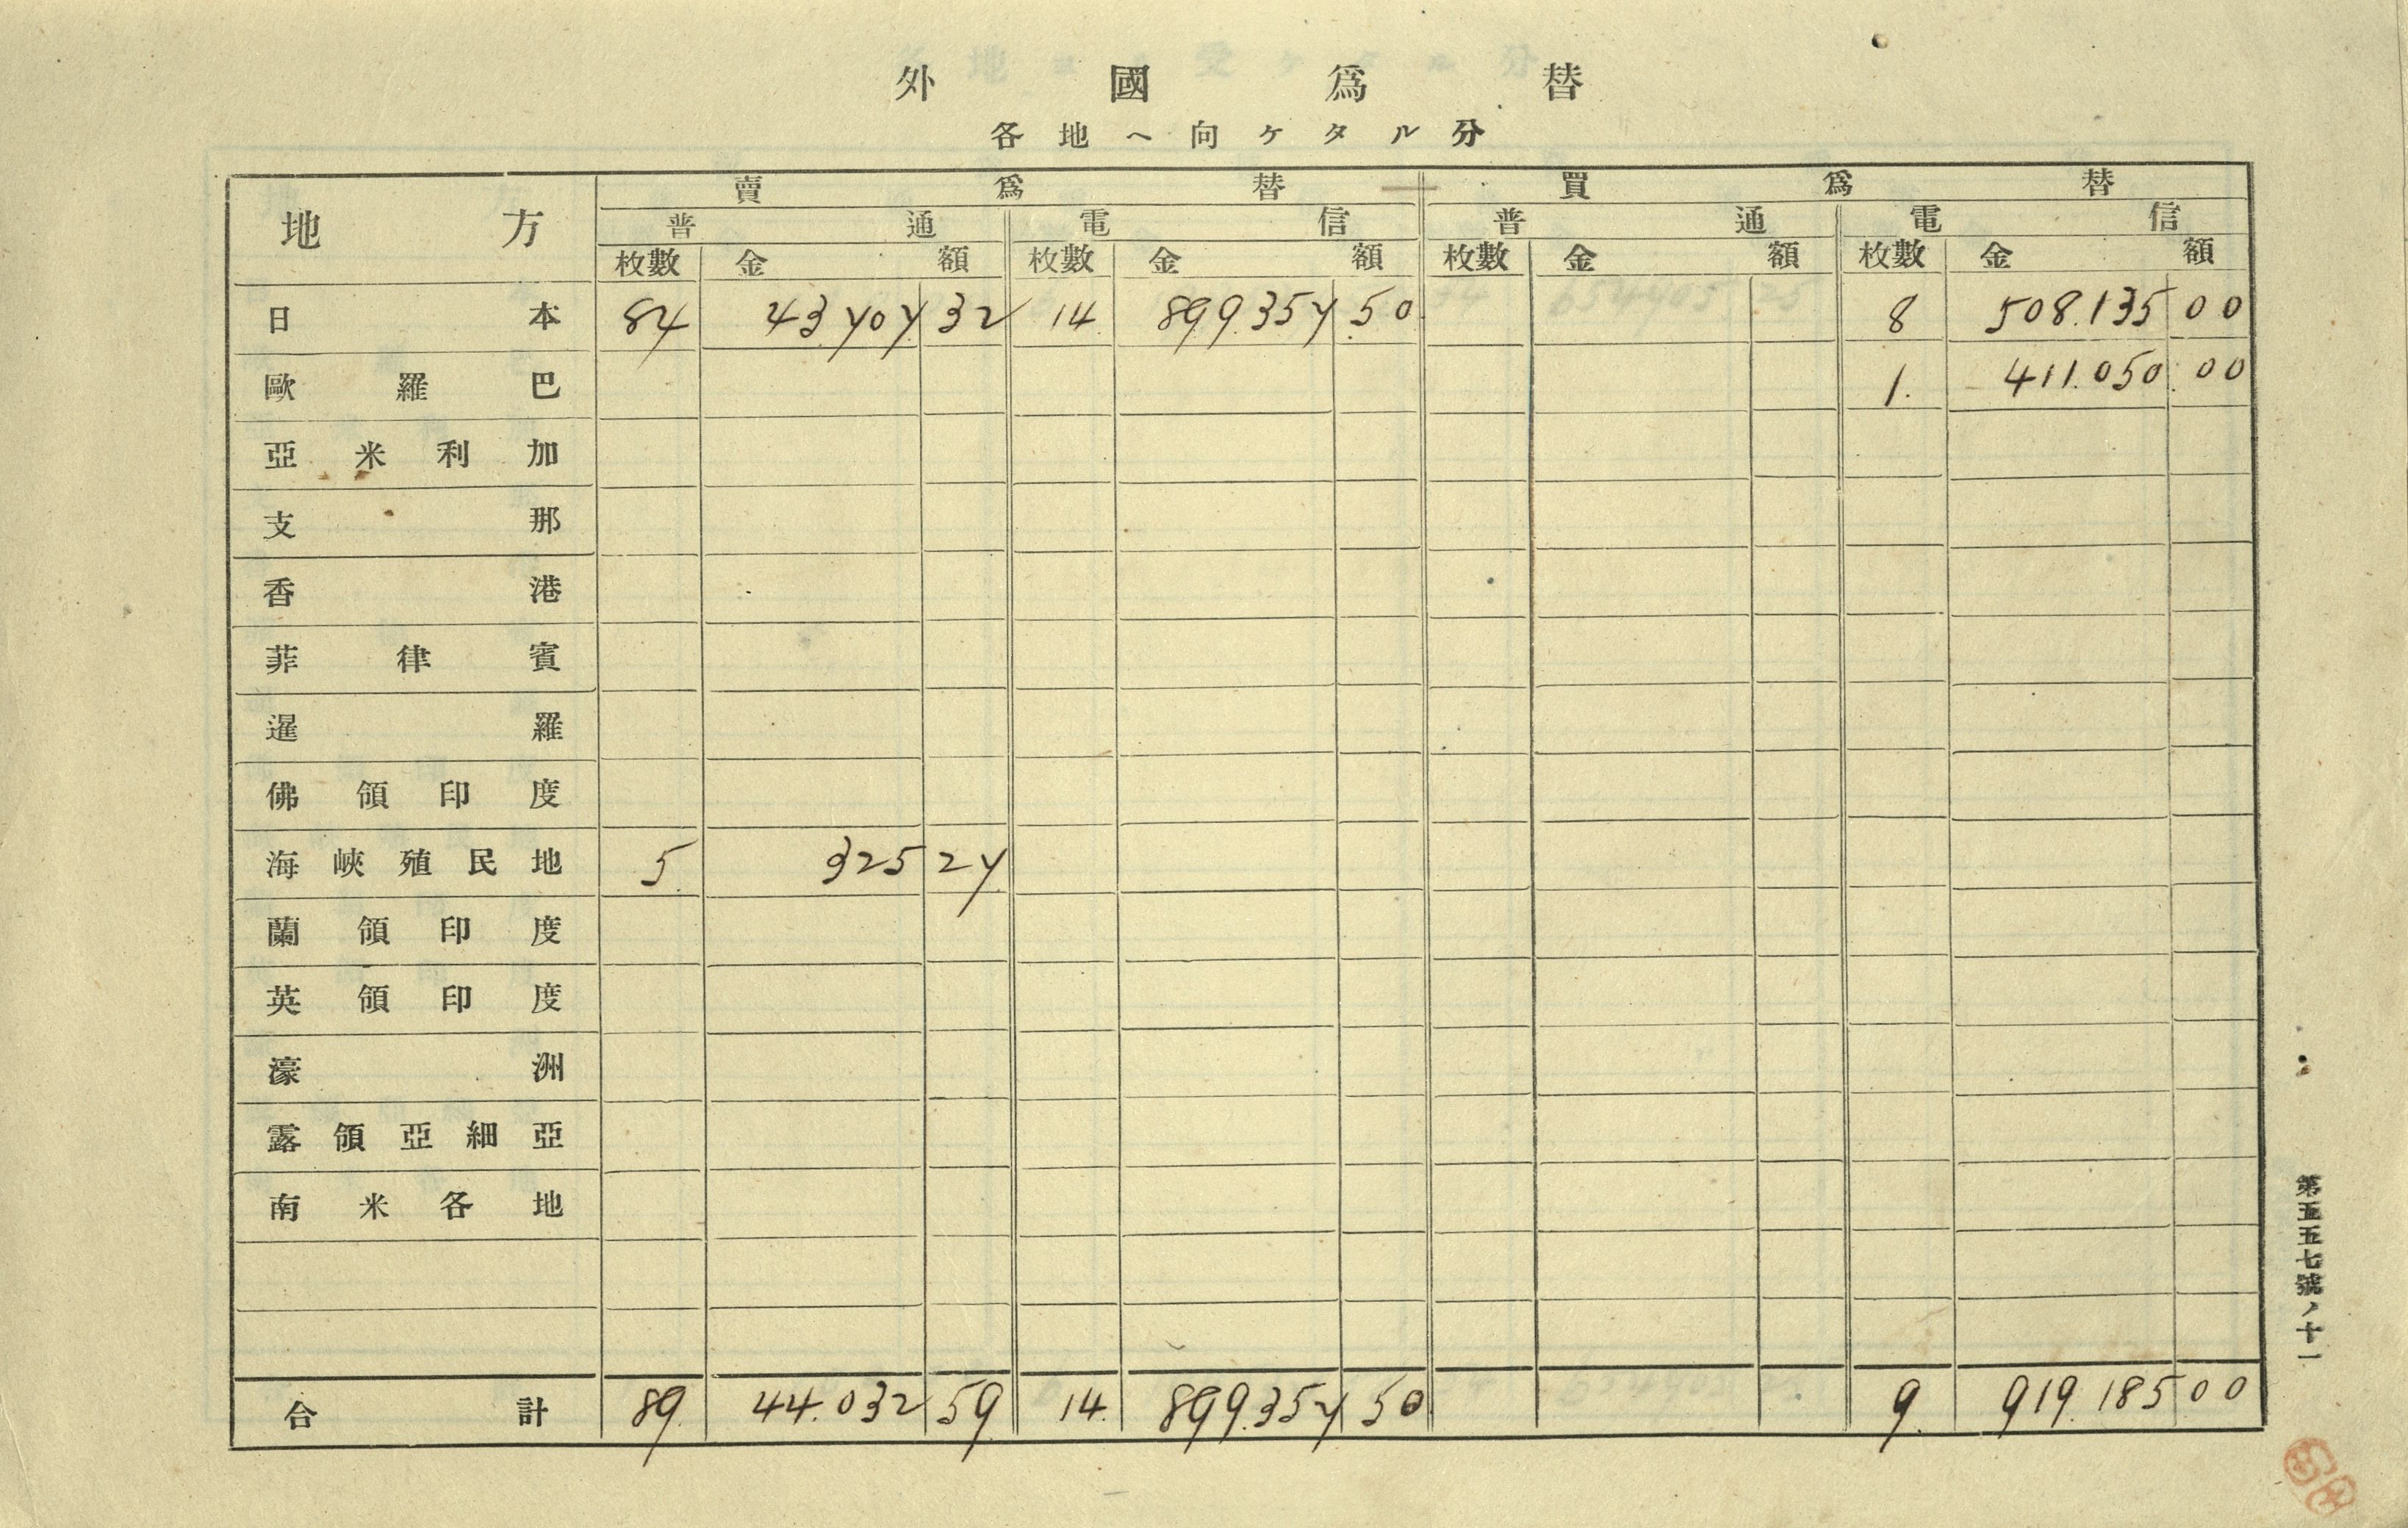 外國爲替
各地ヘ向ケタル分
地方 賣爲替 買爲替
普通 電信 普通 電信
枚數 金額 枚數 金額 枚數 金額 枚數 金額
日本 84 43.707 32 14 899.357 50 8 508.135 00
歐羅巴 1. 411.050 00
亞米利加
支那
香港
菲律賓
暹羅
佛領印度
海峽殖民地 5. 325 27
蘭領印度
英領印度
濠洲
露領亞細亞
南米各地
合計 89. 44.032 59 14. 899.357 50 9. 919.185 00
第五五七號ノ十一